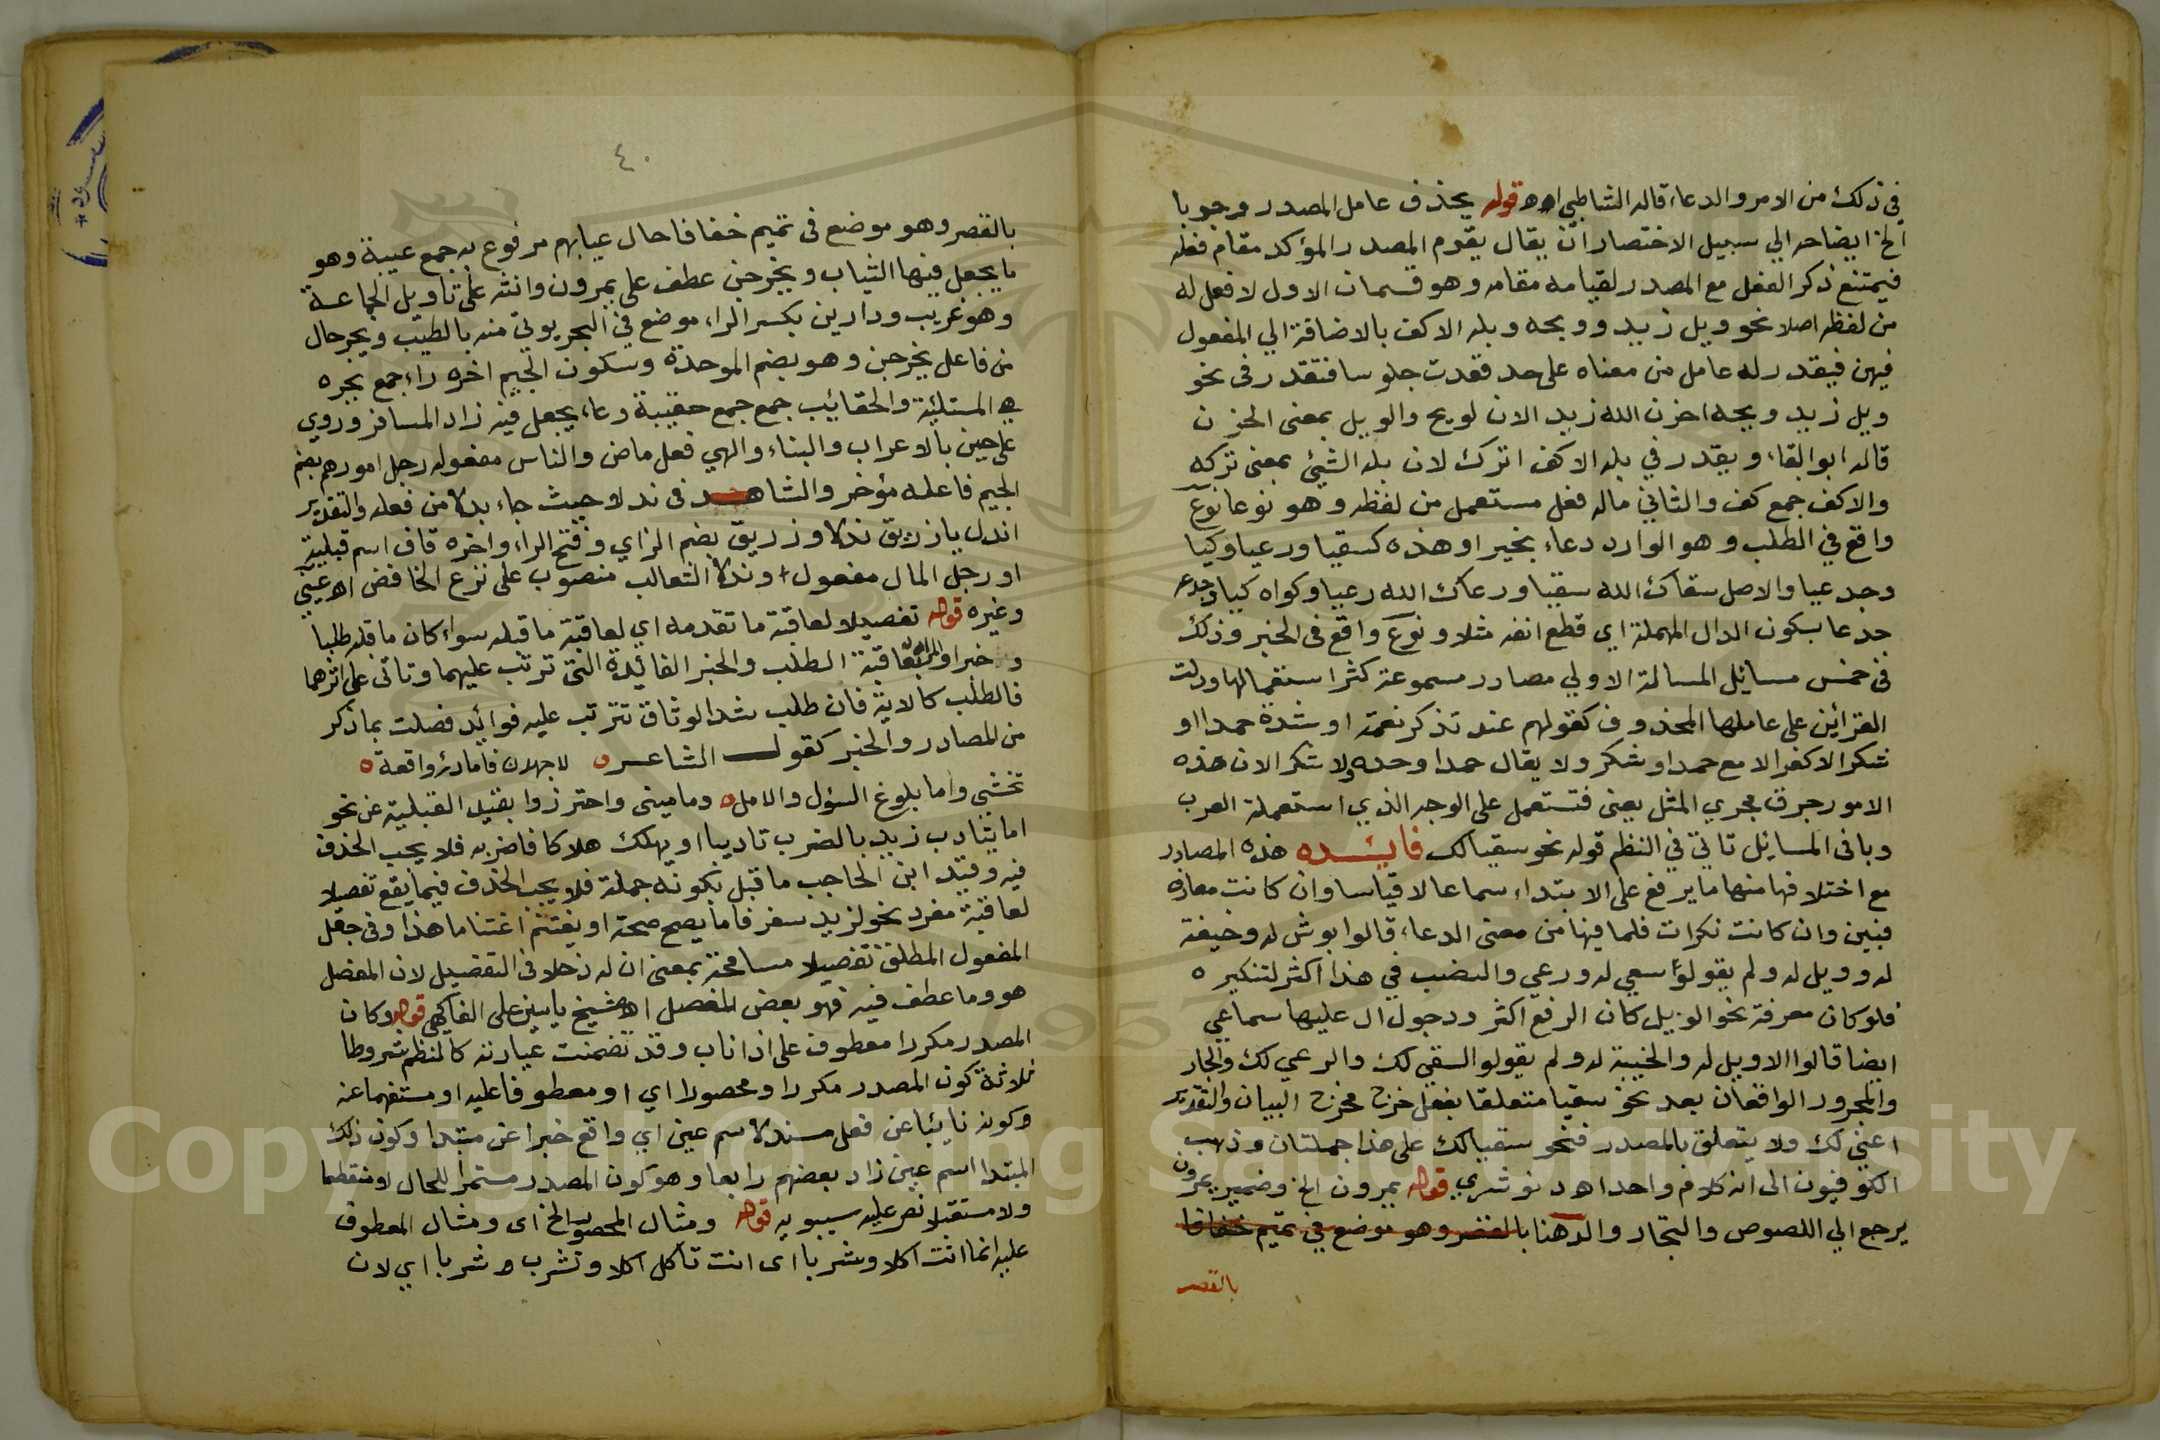 في ذلك من الامر والدعاء قاله الشاطبي اهـ قوله يحذف عامل المصدر وجوبا
الخ ايضاحه الي سبيل الاختصار ان يقال يقوم المصدر المؤكد مقام فعله
فيمتنع ذكر الفعل مع المصدر لقيامه مقامه وهو قسمان الاول لا فعل له
من لفظه اصلا نحو ويل زيد وويحه وبله الاكف بالاضافة الي المفعول
فيهن فيقدر له عامل من معناه على حد قعدت جلوسا فتقدر في نحو
ويل زيد ويحه احزن الله زيد الان لويح والويل بمعنى الحزن
قاله ابو البقاء ويقدر في بله الاكف اترك لان بله الشيئ بمعنى تركه
والاكف جمع كف والثاني ماله فعل مستعمل من لفظه وهو نوعا نوع
واقع في الطلب وهو الوارد دعاء بخير او هذه كسقيا ورعيا وكيا
وجدعيا والاصل سقاك الله سقيا ورعاك الله رعيا وكواه كيا وجدع
جدعا بسكون الدال المهملة اي قطع انفه مثلا ونوع واقع في الخبر وذلك
في خمس مسائل المسالة الاولي مصادر مسموعة كثر استعمالها ودلت
القرائن على عاملها المحذوف كقولهم عند تذكر نعمة او شدة حمدا او
شكرا لا كفرا لا مع حمدا وشكر ولا يقال حمدا وحده ولا شكر الان هذه
الامور جرت مجري المثل يعني فتستعمل على الوجه الذي استعملة العرب
وباقي المسائل تاتي في النظم قوله نحو سقيا لك فائده هذه المصادر
مع اختلافها منها ما يرفع على الابتداء سماعا لا قياسا وان كانت معارف
فبين وان كانت نكرات فلما فيها من معنى الدعاء قالوا بوش له وخيفة
له وويل له ولم يقولوا سعي له ورعي والنصب في هذا اكثر لتنكيره
فلو كان معرفة نحو الويل كان الرفع اكثر ودخول ال عليها سماعي
ايضا قالوا الاويل له والخيبة له ولم يقولوا السقي لك والرعي لك والجار
والمجرور الواقعان بعد نحو سقيا متعلقا بفعل خرج مخرج البيان والتقدير
اعني لك ولا يتعلق بالمصدر فنحو سقيا لك على هذا جملتان وذهب
الكوفيون الى انه كلام واحد اهـ دنوشري قوله يمرون الخ وضمير يمرون
يرجع الي اللصوص والتجار والدهنا بالقصر وهو موضع في تميم خفافا
بالقصر
٤٠
بالقصر وهو موضع في تميم خفافا حال عيابهم مرفوع به جمع عيبة وهو
ما يجعل فيها الثياب ويخرجن عطف على يمرون وانثه على تاويل الجماعة
وهو غريب ودارين بكسر الراء موضع في البحر يوتى منه بالطيب وبجر حال
من فاعل يخرجن وهو بضم الموحدة وسكون الجيم اخره راء جمع بجره
هي الممتلئة والحقائب جمع جمع حقيبة وعاء يجعل فيه زاد المسافر وروي
على حين بالاعراب والبناء والهي فعل ماض والناس مفعوله وجل امورهم بضم
الجيم فاعله مؤخر والشاهد في ندلا حيث جاء بدلا من فعله والتقدير
اندل يا زريق ندلا وزريق بضم الزاي وفتح الراء واخره قاف اسم قبيلة
او رجل المال مفعول وندلا الثعالب منصوب على نزع الخافض اهـ عيني
وغيره قوله تفصيلا لعاقبة ما تقدمه اي لعاقبة ما قبله سواء كان ما قبله طلبا
وخبرا والمراد بعاقبة الطلب والخبر الفائدة التى ترتب عليهما وتاتى على اثرهما
فالطلب كالاية فان طلب شد الوثاق تترتب عليه فوائد فصلت بما ذكر
من المصادر والخبر كقول الشاعر لاجهدن فاما درء واقعة
تخشي واما بلوغ السؤل والامل وما ميني واحترزوا بقيد القبلية عن نحو
اما يتادب زيد بالضرب تاديبا او يهلك هلاكا فاضربه فلا يجب الحذف
فيه وقيد ابن الحاجب ما قبل بكونه جملة فلا يجب الحذف فيما يقع تفصيلا
لعاقبة مفرد نحو لزيد سفر فاما يصح صحة او يغتنم اغتناما هذا وفي جعل
المفعول المطلق تفصيلا مسامحة بمعنى ان له دخلا في التفصيل لان المفصل
هو وما عطف فيه فهو بعض المفصل اهـ شيخ ياسين على الفاكهي قوله وكان
المصدر مكررا معطوف على اذا ناب وقد تضمنت عبارته كالنظم شروطا
ثلاثة كون المصدر مكررا ومحصورا اي او معطوفا عليه او مستفهما عنه
وكونه نايبا عن فعل مسند لاسم عين اي واقع خبرا عن مبتدا وكون ذلك
المبتدا اسم عين زاد بعضهم رابعا وهو كون المصدر مستمرا للحال لا منقطعا
ولا مستقبلا نص عليه سيبويه قوله ومثال المحصور الخ اى ومثال المعطوف
عليه انما انت اكلا وشربا اى انت تاكل اكلا وتشرب شربا اي لان